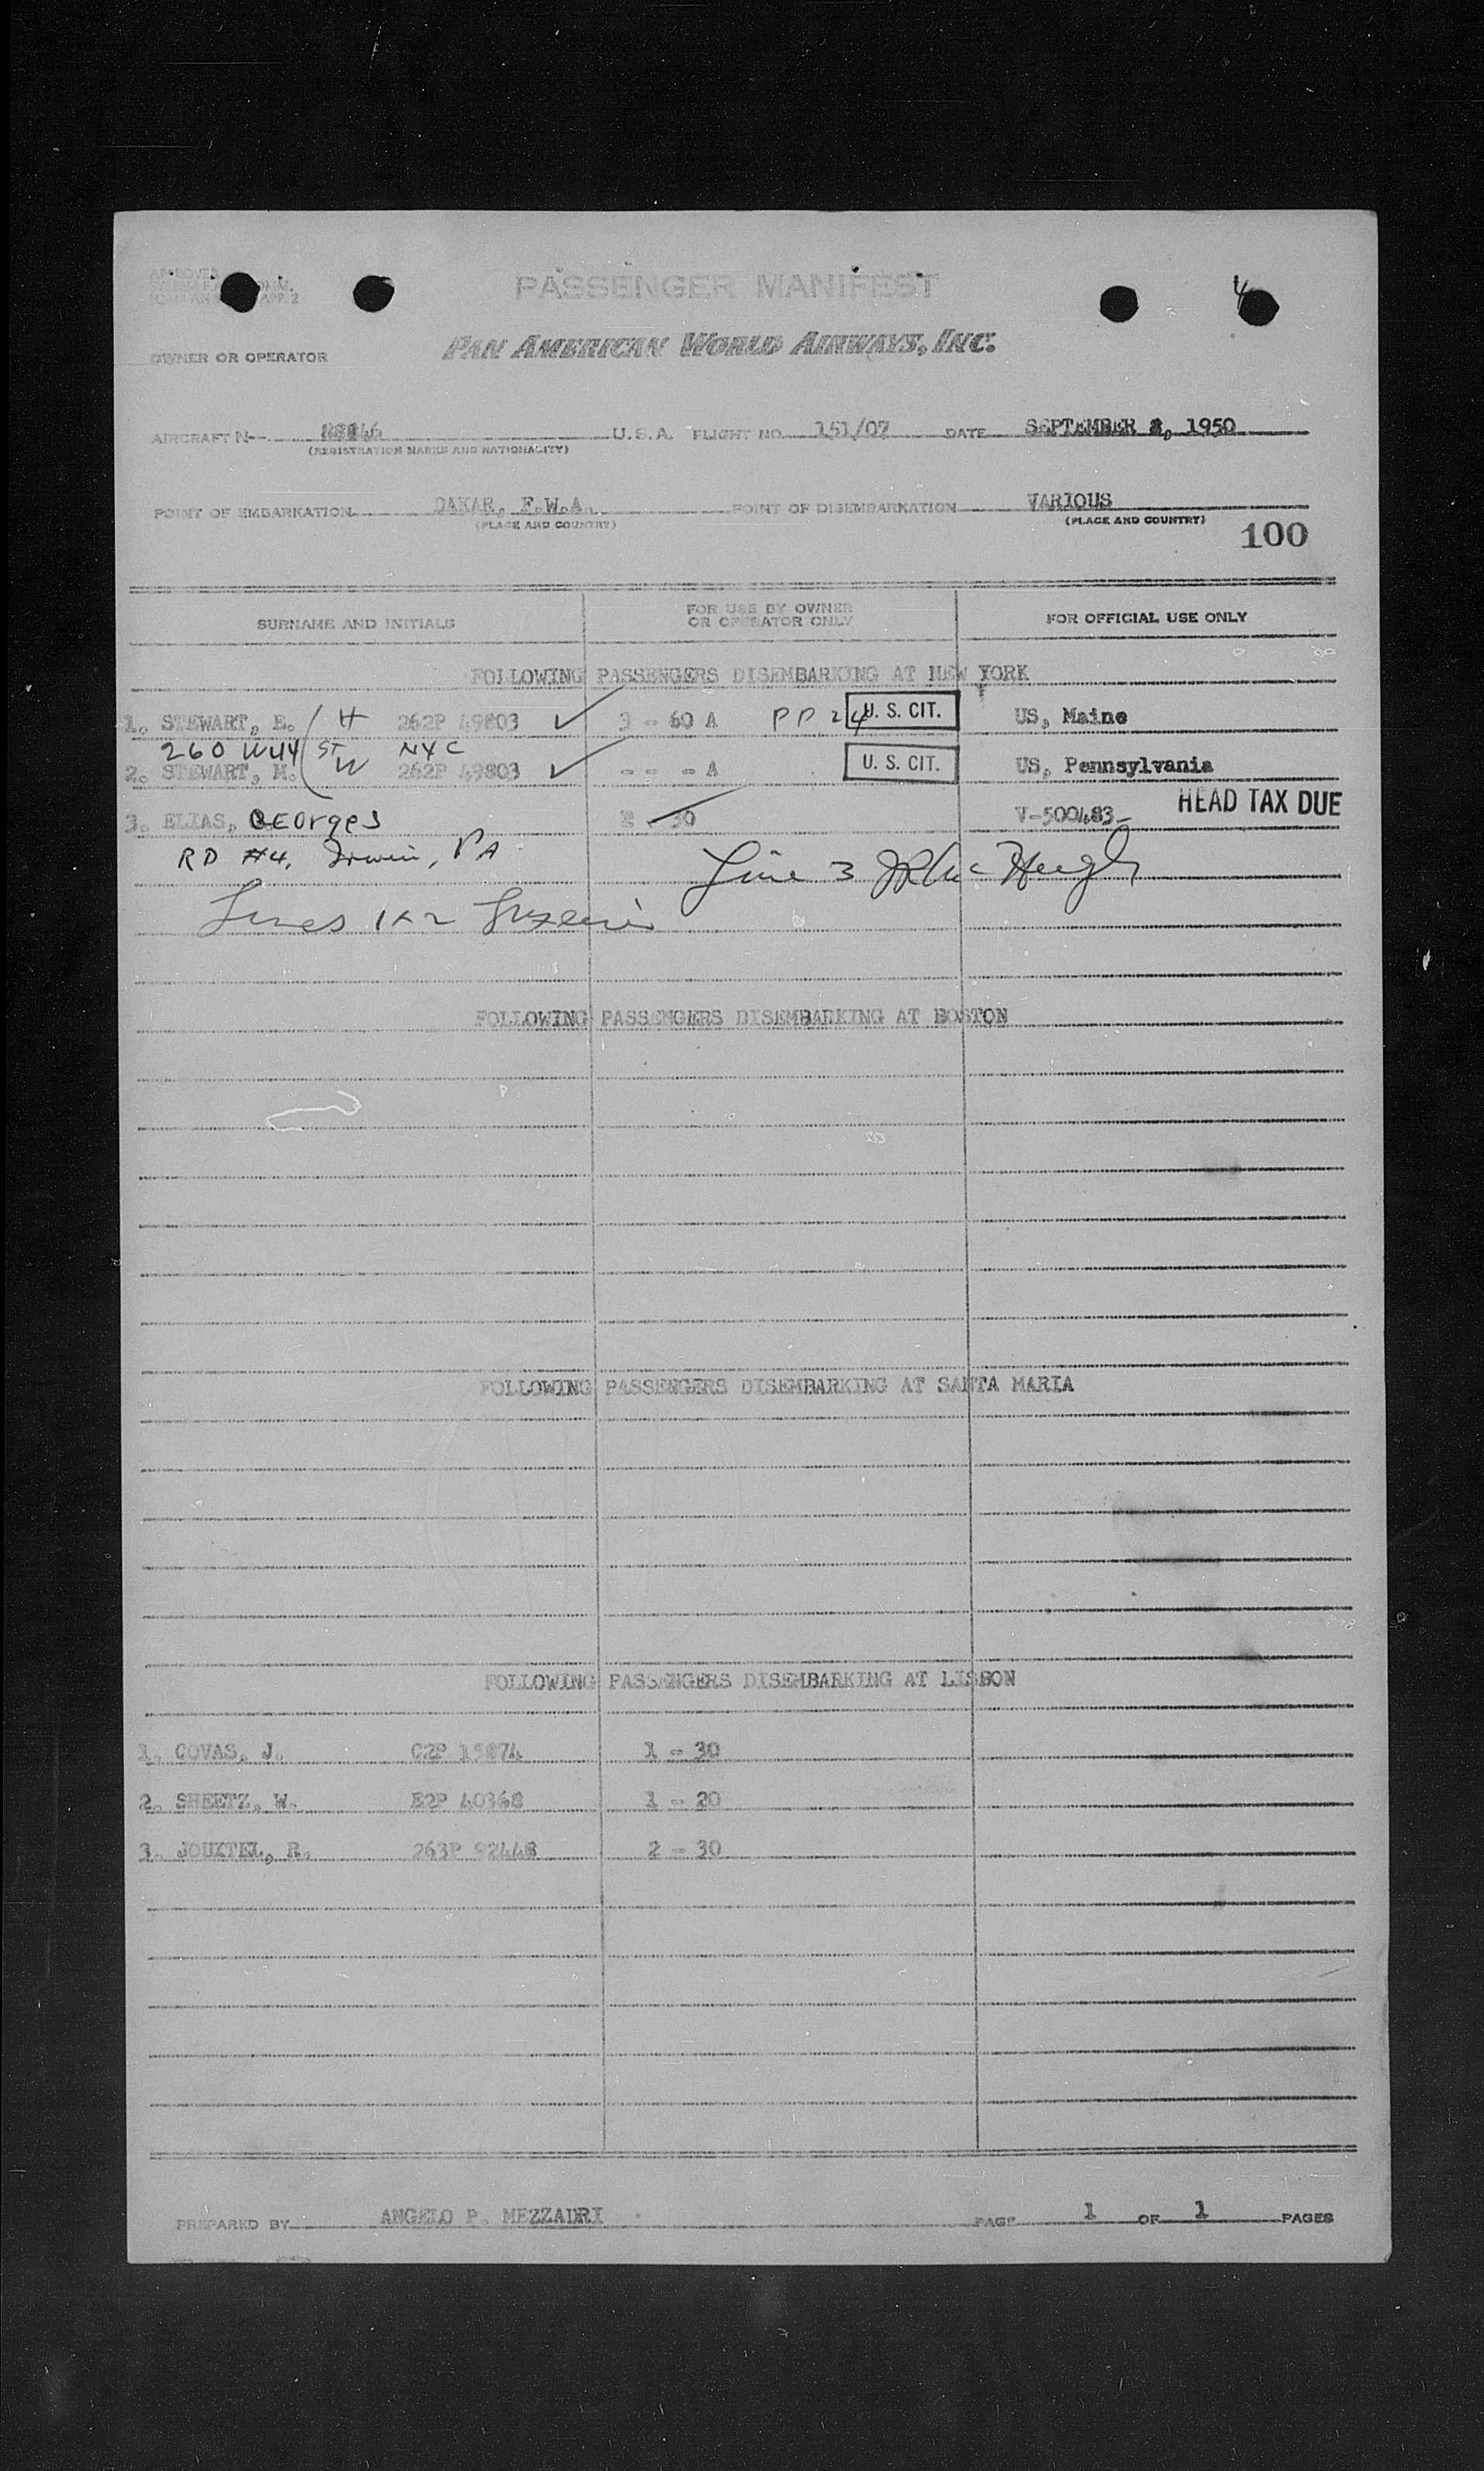 PASSENGER MANIFEST
4
PAN AMERICAN WORLD AIRWAYS, INC.
OWNER OR OPERATOR
AIRCRAFT N- U.S.A. FLIGHT NO. 151/07 DATE SEPTEMBER 1950
(REGISTRATION MARKS AND NATIONALITY)
POINT OF EMBARKATION DAKAR, F.W.A. POINT OF DISEMBARKATION VARIOUS
(PLACE AND COUNTRY) (PLACE AND COUNTRY)
100
SURNAME AND INITIALS FOR USE BY OWNER OR OPERATOR ONLY FOR OFFICIAL USE ONLY
FOLLOWING PASSENGERS DISEMBARKING AT NEW YORK
1. STEWART, E. H 262P 49803 ✓ 3 - 60 A PP 24 U. S. CIT. US, Maine
260 W 44 ST NYC
2. STEWART, M. W 262P 49803 ✓ - - - A U. S. CIT. US, Pennsylvania
3. ELIAS, GEorges 30 V-500483- HEAD TAX DUE
RD #4, Irwin, PA
Line 3
Lines 1 & 2
FOLLOWING PASSENGERS DISEMBARKING AT BOSTON
FOLLOWING PASSENGERS DISEMBARKING AT SANTA MARIA
FOLLOWING PASSENGERS DISEMBARKING AT LISBON
1. COVAS, J. C2P 1 - 30
2. SHEETZ, W. E2P 40368 1 - 20
3. JOUXTEL, R. 263P 92448 2 - 30
PREPARED BY ANGELO P. MEZZADRI PAGE 1 OF 1 PAGES